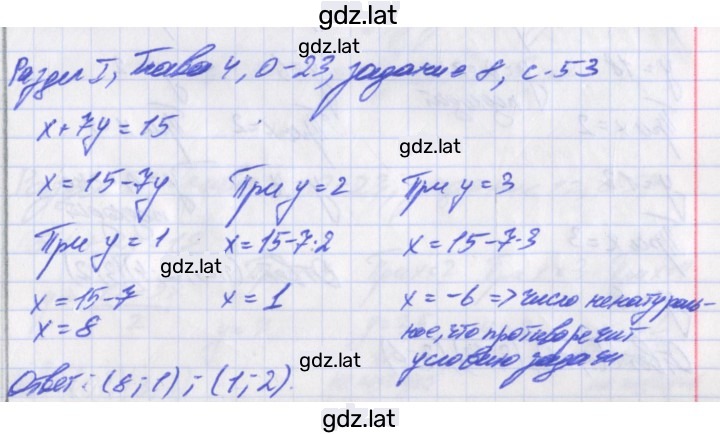 gdz.lat
gdz.lat
Раздел I, Глава 4, О-23, задание 8, с. 53
x+7y=15
gdz.lat
x=15-7y При y=2 При y=3
При y=1 x=15-7·2 x=15-7·3
gdz.lat
x=15-7 x=1 x=-6 => число ненатураль-
x=8 ное, что противоречит
условию задачи
gdz.lat
Ответ: (8;1); (1;2).
gdz.lat